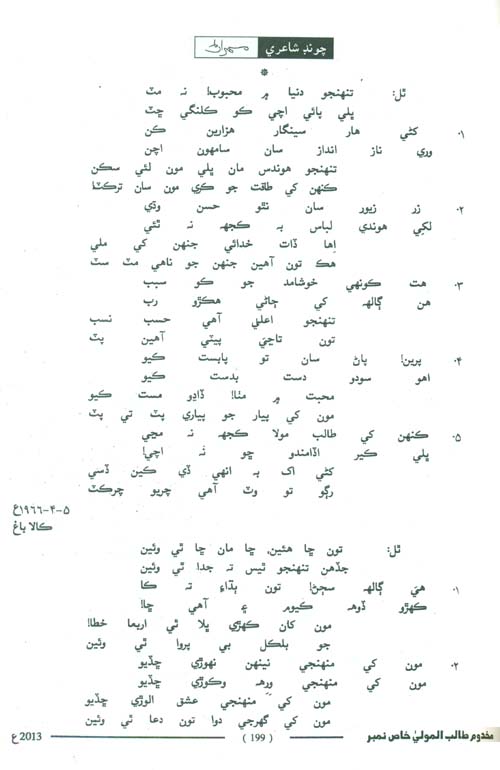 چونڊ شاعري مهراڻ
*
ٿل: تنهنجو دنيا ۾ محبوب! نه مٽ
ڀلي پائي اچي ڪو ڪلنگي چٽ
۱. ڪئي هار سينگار هزارين ڪن
وري ناز انداز سان سامهون اچن
تنهنجو هوندس مان ڀلي مون لئي سڪن
ڪنهن کي طاقت جو ڪري مون سان ترڪٽ!
۲. زر زيور سان نٿو حسن وڌي
لکي هوندي لباس به ڪجهه نه ٿئي
اها ذات خدائي جنهن کي ملي
هڪ تون آهين جنهن جو ناهي مٽ سٽ
۳. هت ڪونهي خوشامد جو ڪو سبب
هن ڳالهه کي ڄاڻي هڪڙو رب
تنهنجو اعليٰ آهي حسب نسب
تون تاڃي پيٽي آهين پٽ
۴. پرين! پاڻ سان تو پابست ڪيو
اهو سودو دست بدست ڪيو
محبت ۾ مٺا! ڏاڍو مست ڪيو
مون کي پيار جو پياري پٽ تي پٽ
۵. ڪنهن کي طالب مولا ڪجهه نه مڃي
ڀلي ڪير اڏامندو ڇو نه اچي!
کڻي اک به انهي ڏي ڪين ڏسي
رڳو تو وٽ آهي چريو چرڪٽ
۵-۴-۱۹٦٦ع
ڪالا باغ
ٿل: تون ڇا هئين، ڇا مان ڇا ٿي وئين
جڏهن تنهنجو ٿيس ته جدا ٿي وئين
۱. هيَ ڳالهه سڄڻ! تون ٻڌاءِ ته ڪا
ڪهڙو ڏوهه ڪيوم ۽ آهي ڇا!
مون کان ڪهڙي ڀلا ٿي اربعا خطا!
جو بلڪل بي پروا ٿي وئين
۲. مون کي منهنجي نينهن نهوڙي ڇڏيو
مون کي منهنجي ورهه وڪوڙي ڇڏيو
مون کي منهنجي عشق الوڙي ڇڏيو
مون کي گهرجي دوا تون دعا ٿي وئين
مخدوم طالب الموليٰ خاص نمبر ( 199 ) 2013 ع